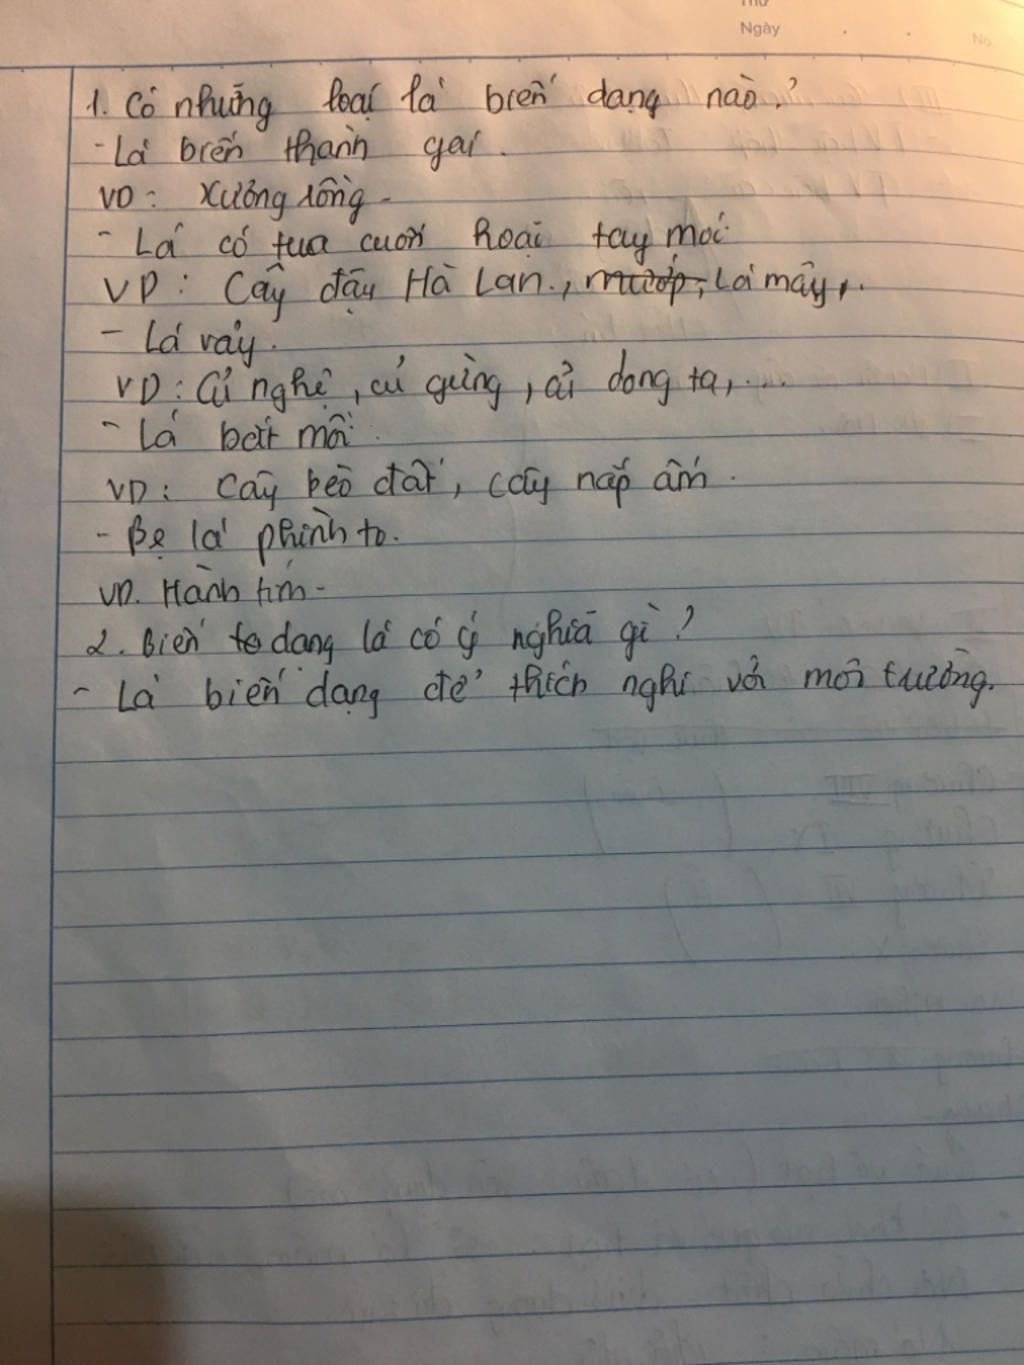 Thứ
Ngày
No.
1. Có những loại lá biến dạng nào?
- Lá biến thành gai.
VD: Xương rồng.
- Lá có tua cuốn hoặc tay móc.
VD: Cây đậu Hà Lan, mướp, Lá mây,..
- Lá vảy.
VD: Củ nghệ, củ gừng, củ dong ta,...
- Lá bắt mồi.
VD: Cây bèo đất, cây nắp ấm.
- Bẹ lá phình to.
VD. Hành tím.
2. Biến to dạng lá có ý nghĩa gì?
- Lá biến dạng để thích nghi với môi trường.